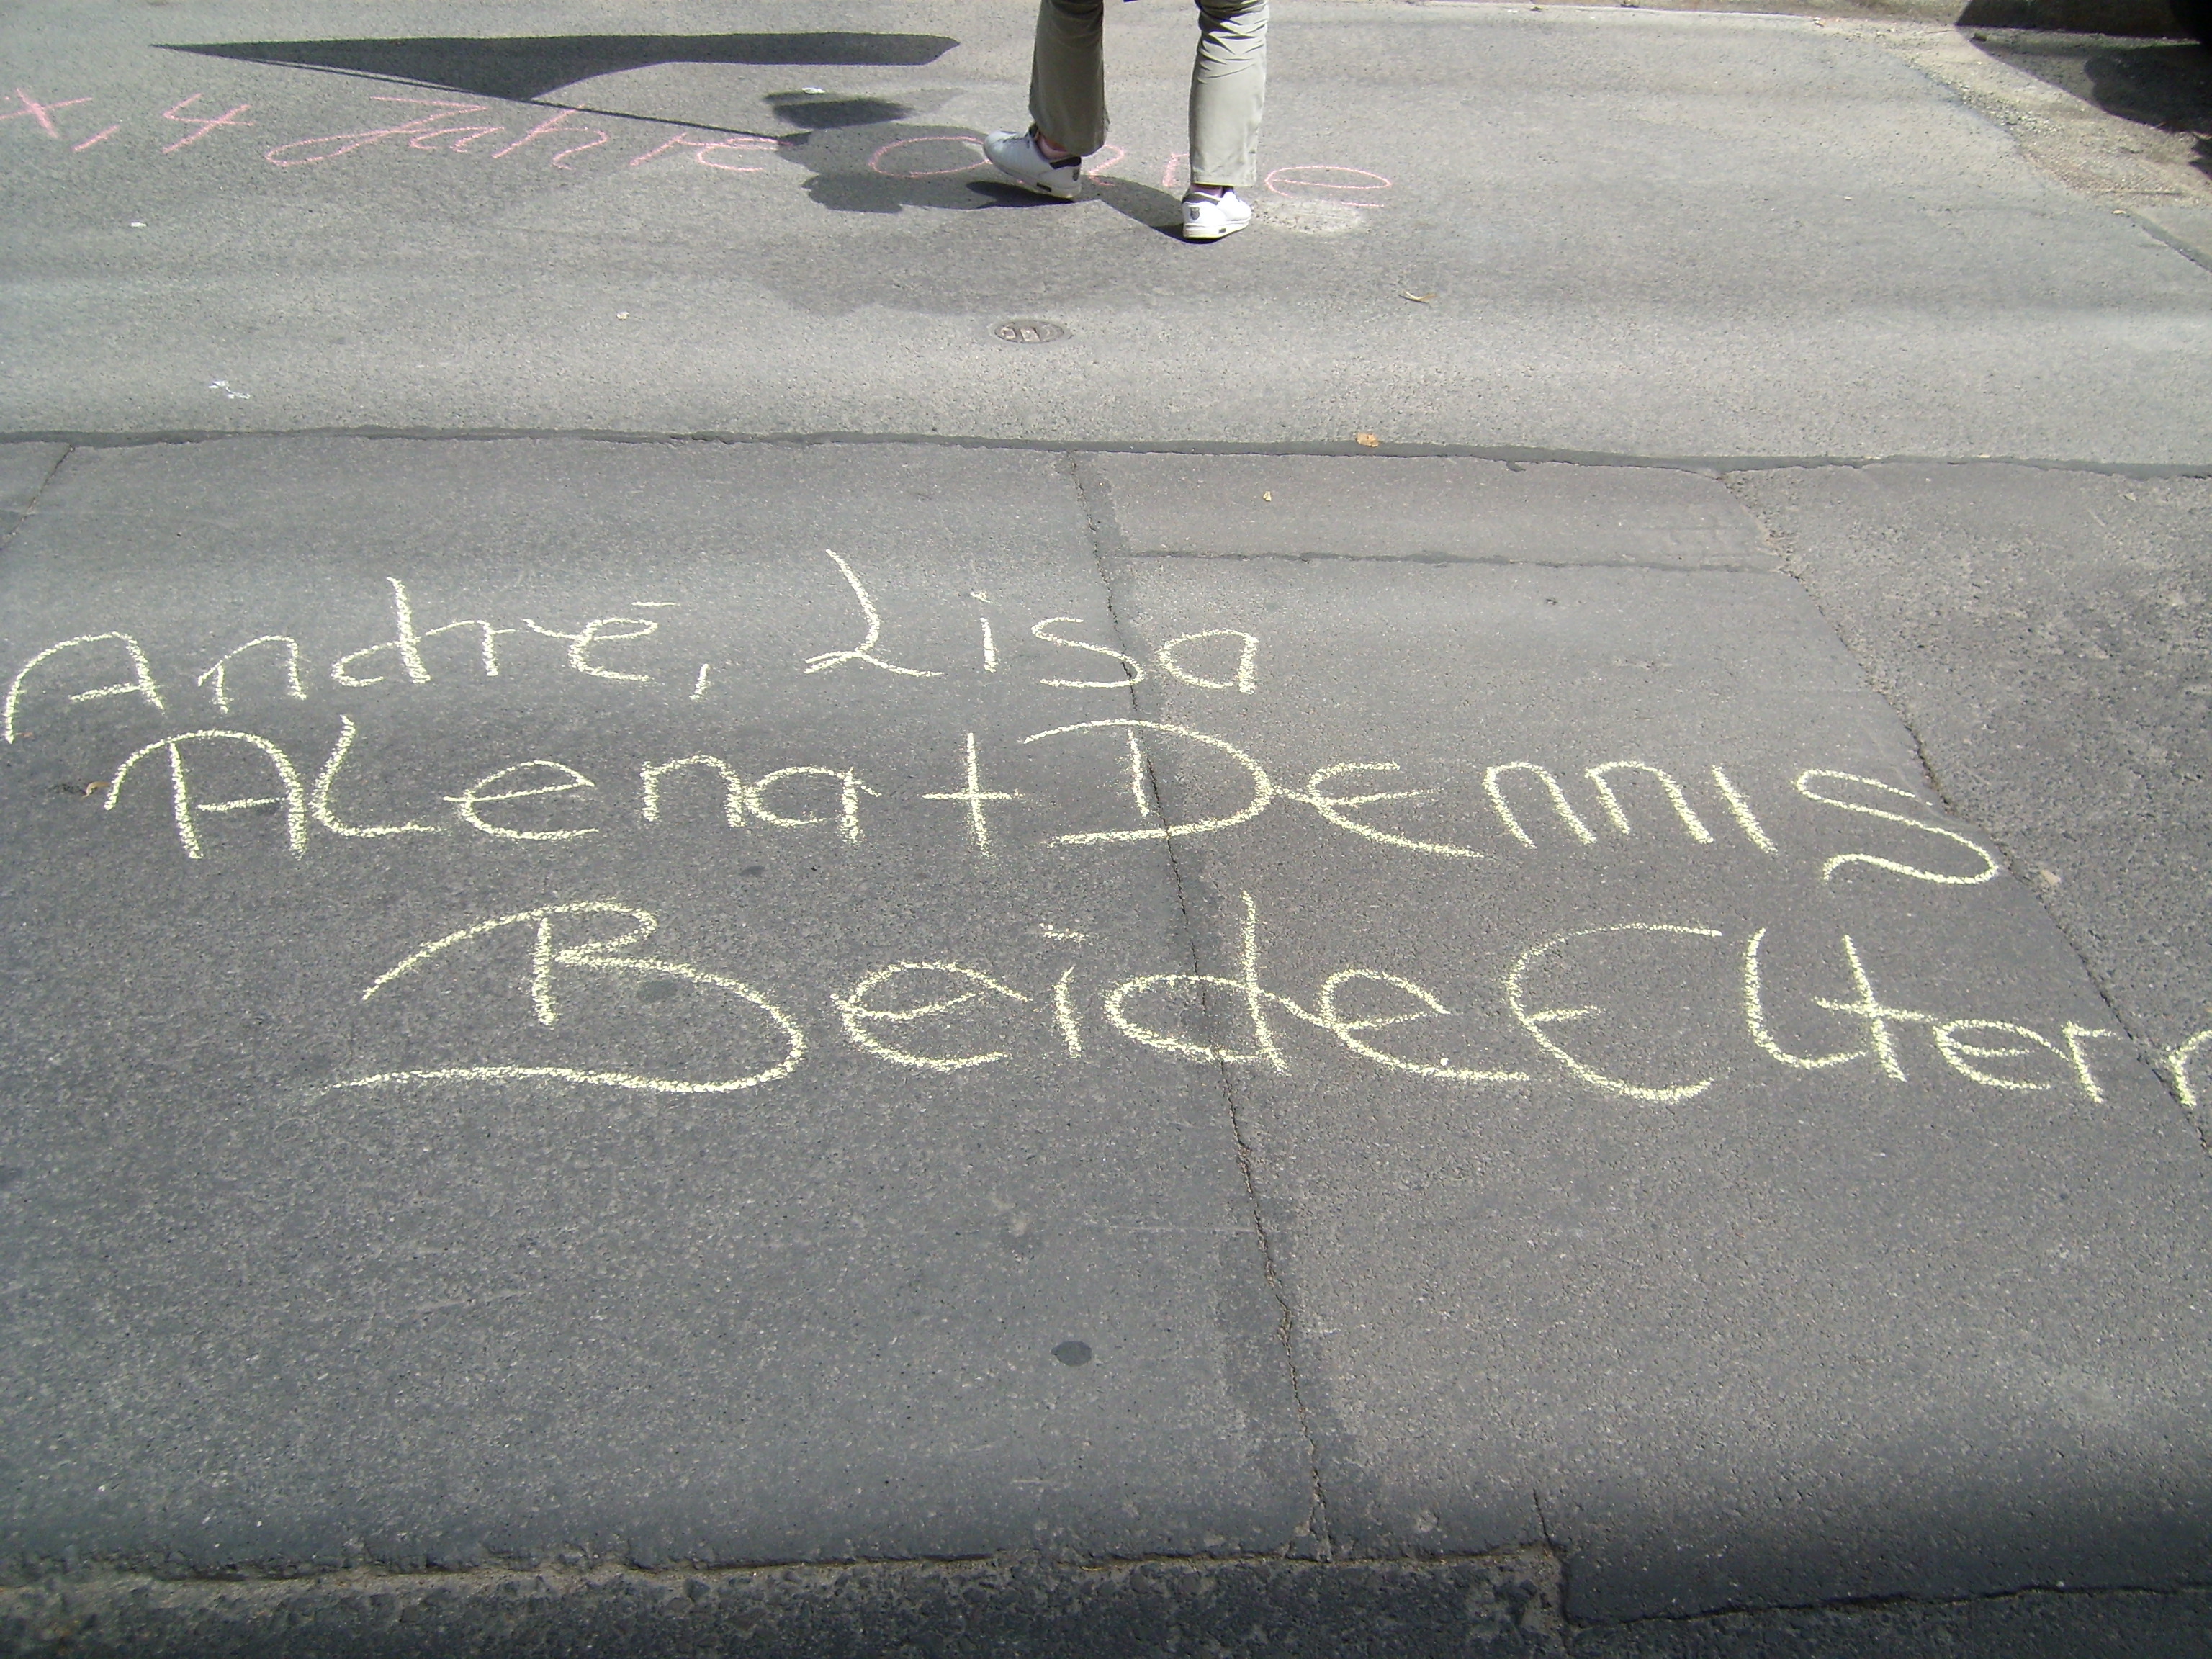 x, 4 Jahre
André, Lisa
ALena + Dennis
Beide Eltern